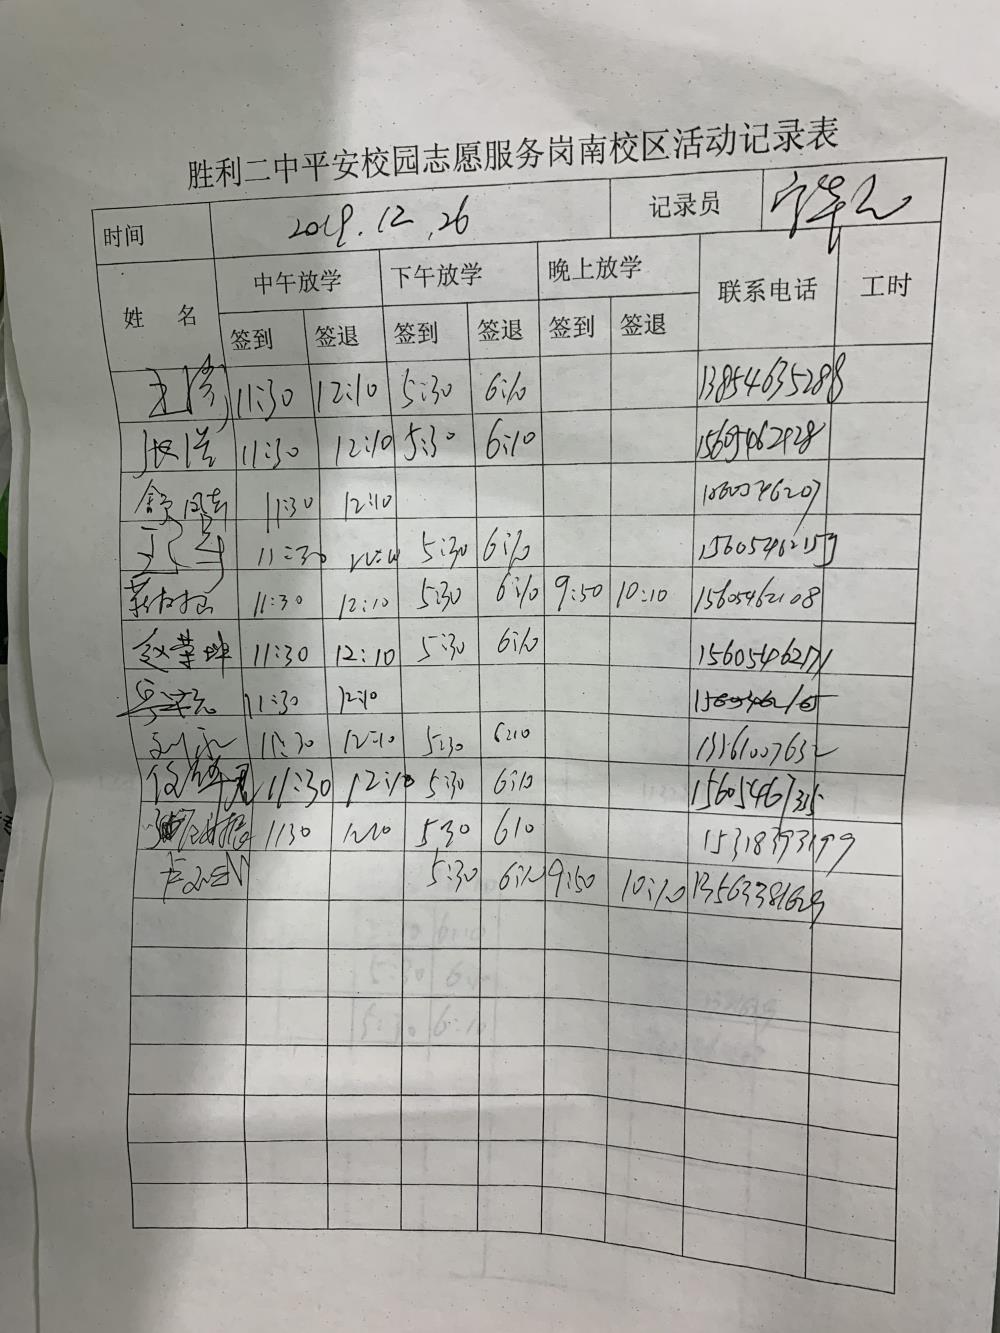 胜利二中平安校园志愿服务岗南校区活动记录表
时间 2019.12.26 记录员
姓 名 中午放学 下午放学 晚上放学 联系电话 工时
签到 签退 签到 签退 签到 签退
11:30 12:10 5:30 6:10 13854635288
张 11:30 12:10 5:30 6:10 15605462928
11:30 12:10
王 11:30 5:30 6:10
11:30 12:10 5:30 6:10 9:50 10:10 15605462108
赵荣坤 11:30 12:10 5:30 6:10 15605462171
11:30 12:10 15605462165
刘 11:30 12:10 5:30 6:10 13361007632
11:30 12:10 5:30 6:10
1130 1210 530 610 15318393199
5:30 6:10 9:50 10:10 13563381629